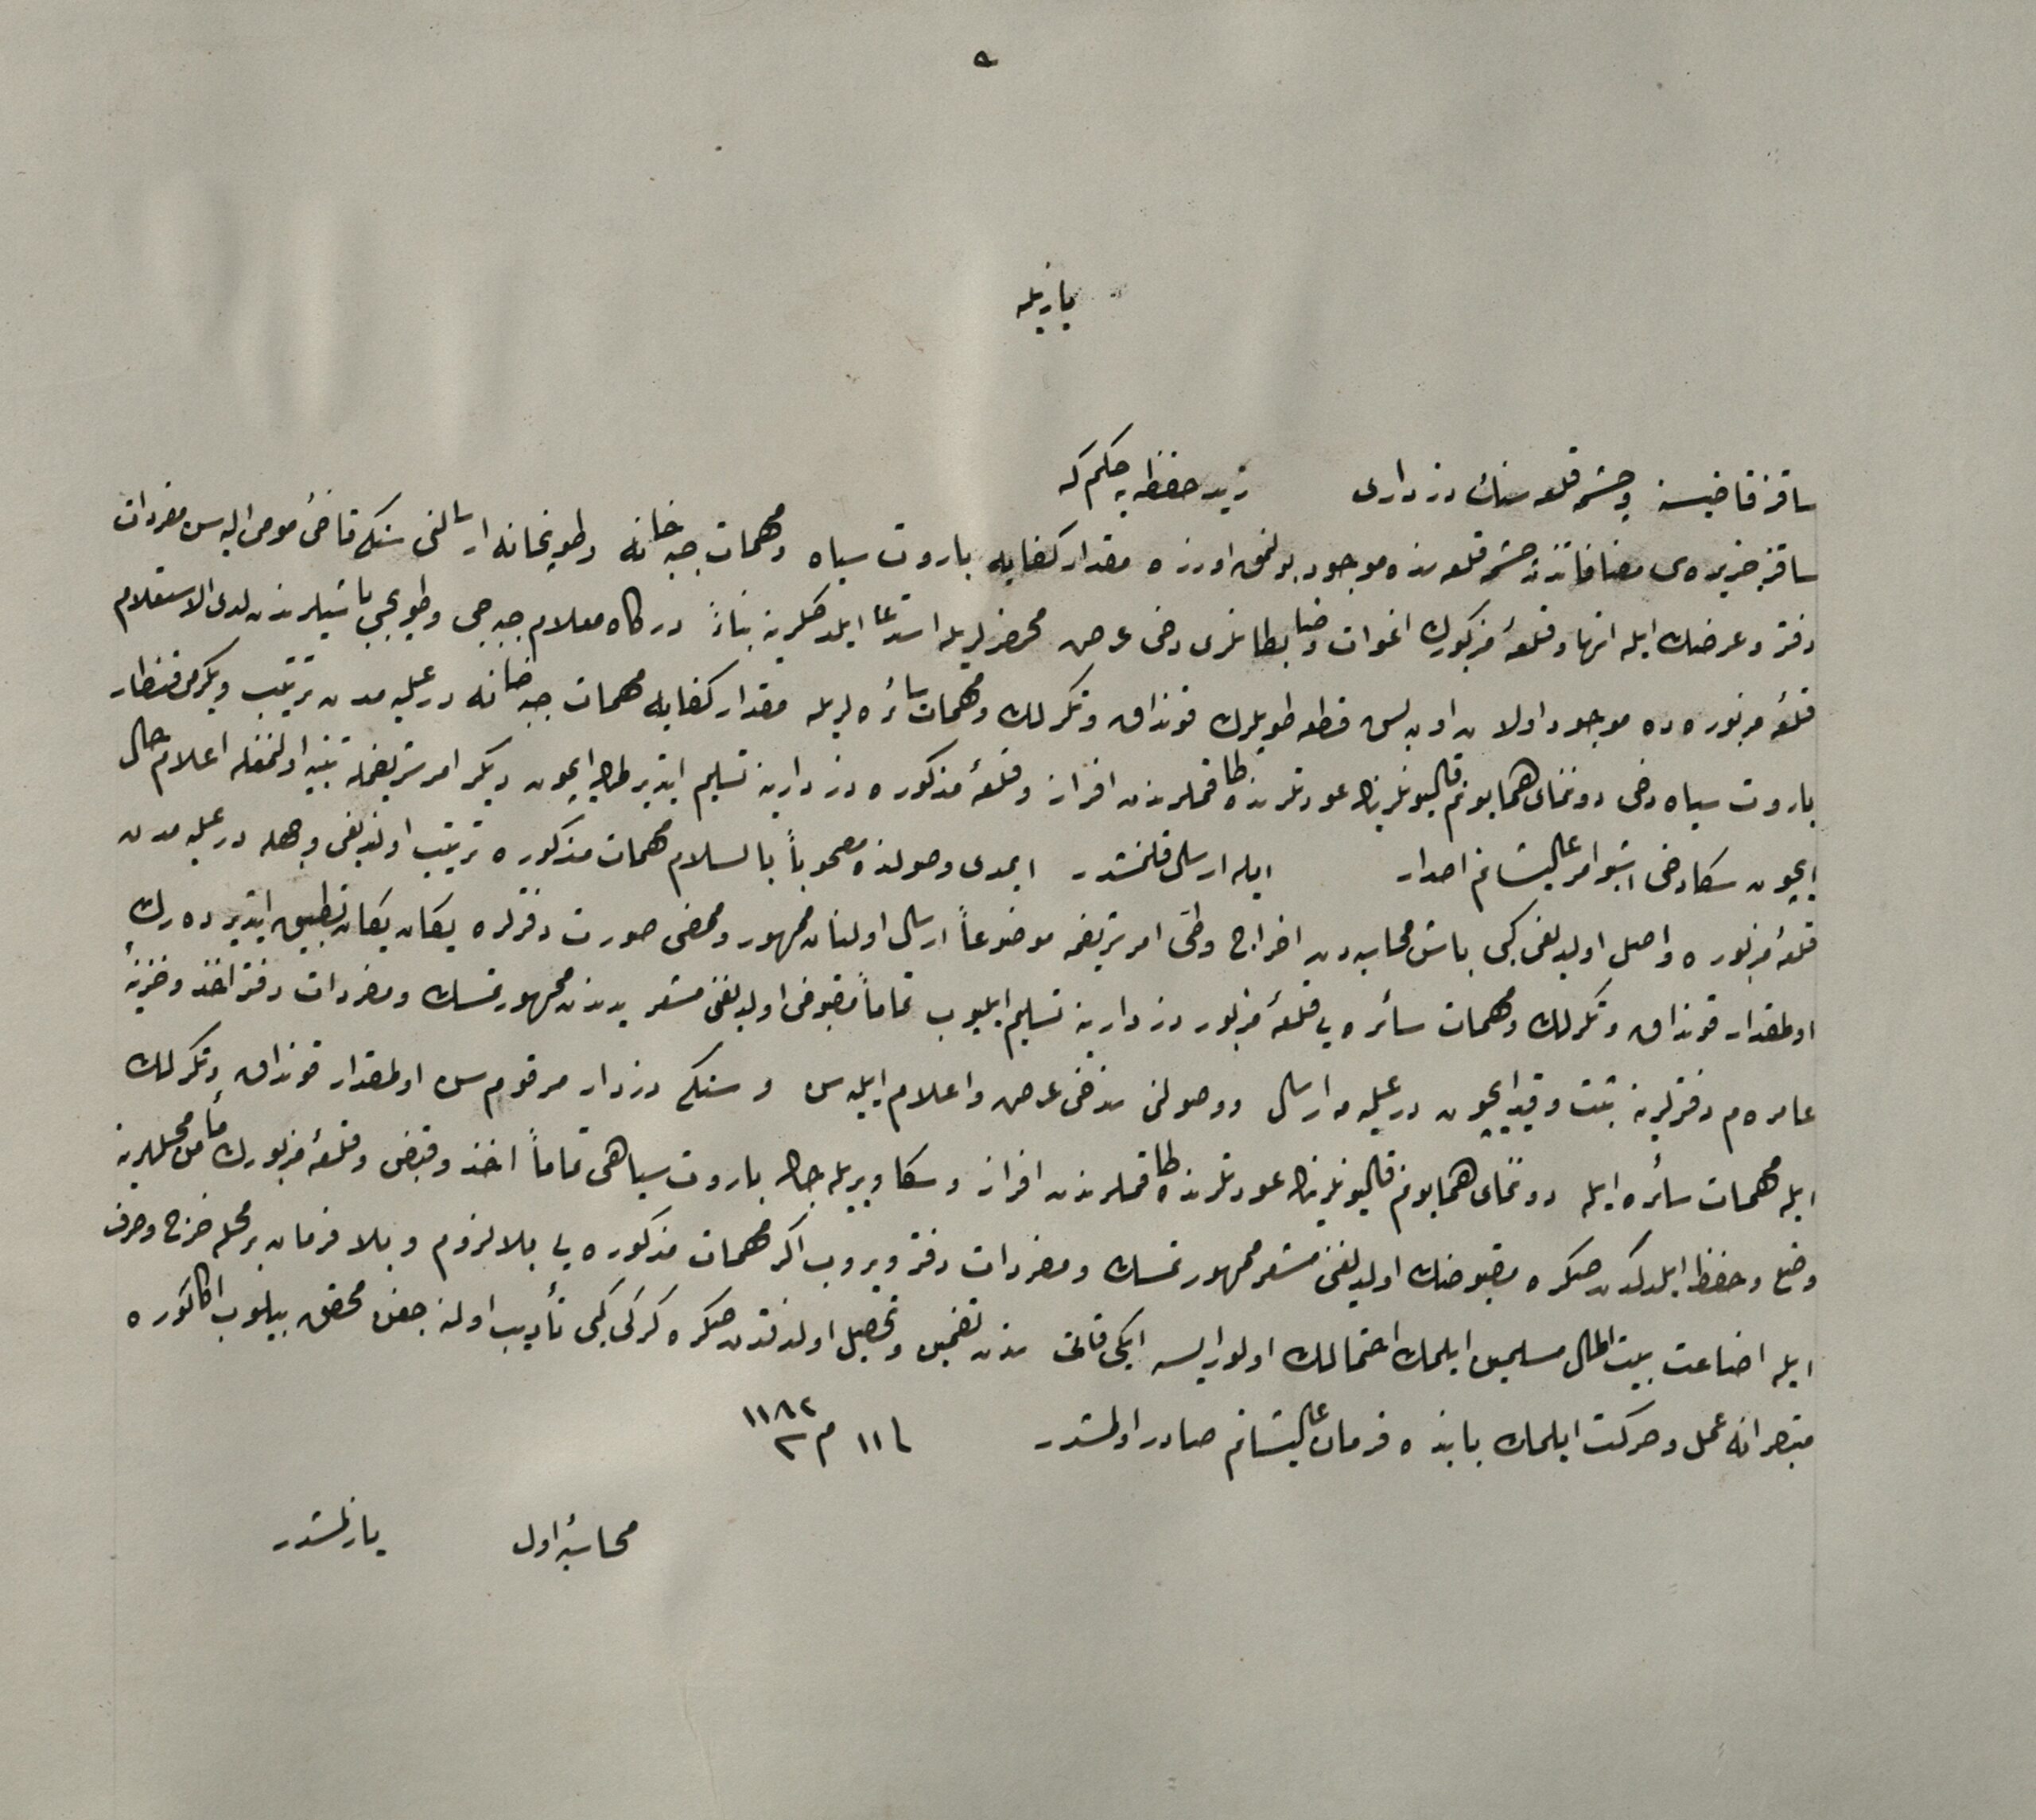 ه
یازیله
ساقز قاضیسنه و چشمه قلعه سنك دزداری زید حفظه یه حكم كه
ساقز جزیره سی مضافاتندن چشمه قلعه سنده موجود بولنمق اوزره مقدار كفایه باروت سیاه و مهمات جبه خانه و طوپخانه ارسالنی سنكه قاضئ مومی الیه سن مفردات
دفتر و عرضك ایله انها و قلعۀ مزبورك اغوات و ضابطانلری دخی عرض محضرلریله استدعا ایلدكلرینه بناءً دركاه معلام جبه جی و طوپجی باشیلرندن لدی الاستعلام
قلعۀ مزبوره ده موجود اولان اون بش قطعه طوپلرك قونداق و تكرلك و مهمات سائره لریله مقدار كفایه مهمات جبه خانه درعلیه مدن ترتیب و یكرمی قنطار
باروت سیاه دخی دوننمای همایونم قالیونلرینك عودتلرنده طاقملرندن افراز و قلعۀ مذكوره دزدارینه تسلیم ایتدیرلمك ایچون دیكر امر شریفمله تنبیه اولنمغله اعلام حال
ایچون سكا دخی اشبو امر عالیشانم اصدار ایله ارسال قلنمشدر ایمدی وصولنده مصحوباً بالسلام مهمات مذكوره ترتیب اولندیغی وجهله درعلیه مدن
قلعۀ مزبوره واصل اولدیغی كبی باش محاسبه دن اخراج و طئ امر شریفمه موضوعاً ارسال اولنان ممهور و ممضی صورت دفترلره یكان یكان تطبیق ایتدیره رك
اولمقدار قونداق و تكرلك و مهمات سائره یی قلعۀ مزبور دزدارینه تسلیم ایلیوب تماماً مقبوضی اولدیغنی مشعر یدندن ممهور تمسك و مفردات دفتر اخذ و خزینۀ
عامره م دفترلرینه ثبت و قید ایچون درعلیه مه ارسال و وصولنی سن دخی عرض و اعلام ایلیه سن و سنكه دزدار مرقوم سن اولمقدار قونداق و تكرلك
ایله مهمات سائره ایله دوننمای همایونم قالیونلرینك عودتلرنده طاقملرندن افراز و سكا ویریله جك باروت سیاهی تماماً اخذ و قبض و قلعۀ مزبورك مأمن محللرینه
وضع و حفظ ایلدكدن صكره مقبوضك اولدیغنی مشعر ممهور تمسك و مفردات دفتر ویروب اكر مهمات مذكوره یی بلا لزوم و بلا فرمان بر محله خرج و صرف
ایله اضاعت بیت المال مسلمین ایلمك احتمالك اولور ایسه ایكی قات سندن تضمین و تحصیل اولندقدن صكره كركی كبی تأدیب اولنه جغك محقق بیلوب اكا كوره
متبصرانه عمل و حركت ایلمك بابنده فرمان عالیشانم صادر اولمشدر ١١ م سنه ١١٨٢
محاسبۀ اول یازلمشدر